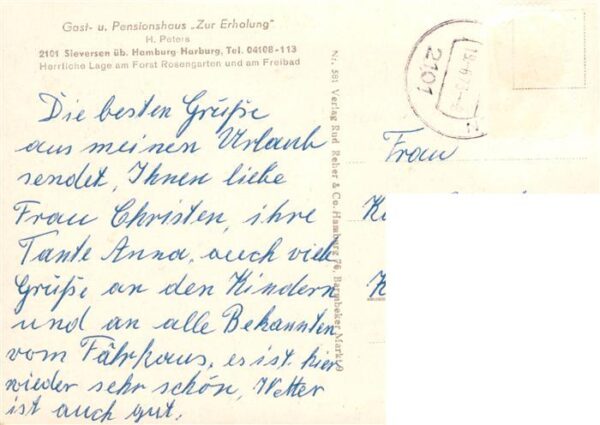 Gast- u. Pensionshaus „Zur Erholung"
H. Peters
2101 Sieversen üb. Hamburg-Harburg, Tel. 04108-113
Herrliche Lage am Forst Rosengarten und am Freibad
Die besten Grüße
aus meinen Urlaub
sendet, Ihnen liebe
Frau Christen, ihre
Tante Anna, auch viele
Grüße an den Kindern
und an alle Bekannten
vom Fährhaus, es ist hier
wieder sehr schön, Wetter
ist auch gut.
Nr. 581 Verlag Rud. Reher & Co. Hamburg 76, Barmbeker Markt 9
2101
Frau
K